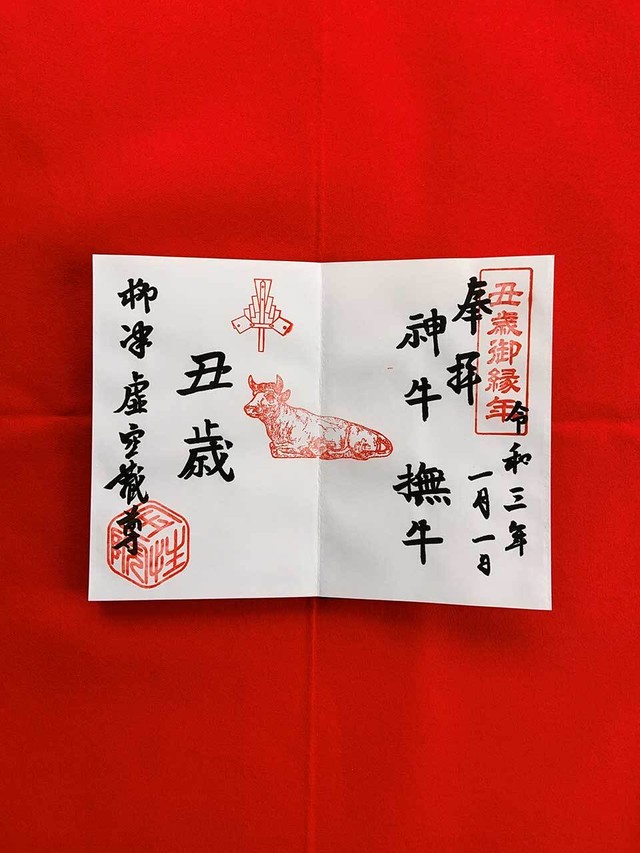 丑歳御縁年
奉拝
令和三年
一月一日
神牛 撫牛
丑歳
柳津虚空蔵尊
宝性院